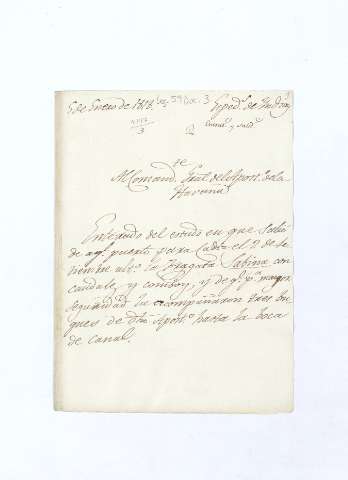 5 de Enero de 1818. Leg. 59 Doc. 3
Exped.s de Indias
3
Al Comand.te Gral. del Apost.º de la
Havana
Enterado del estado en que salió
de aq.l puerto para Cadiz el 2 de Se
tiembre ult.º la Fragata Sabina con
caudales, y comboy, y de q.e p.a mayor
seguridad la acompañaron tres bu
ques de dho Apost.º hasta la boca
de canal.